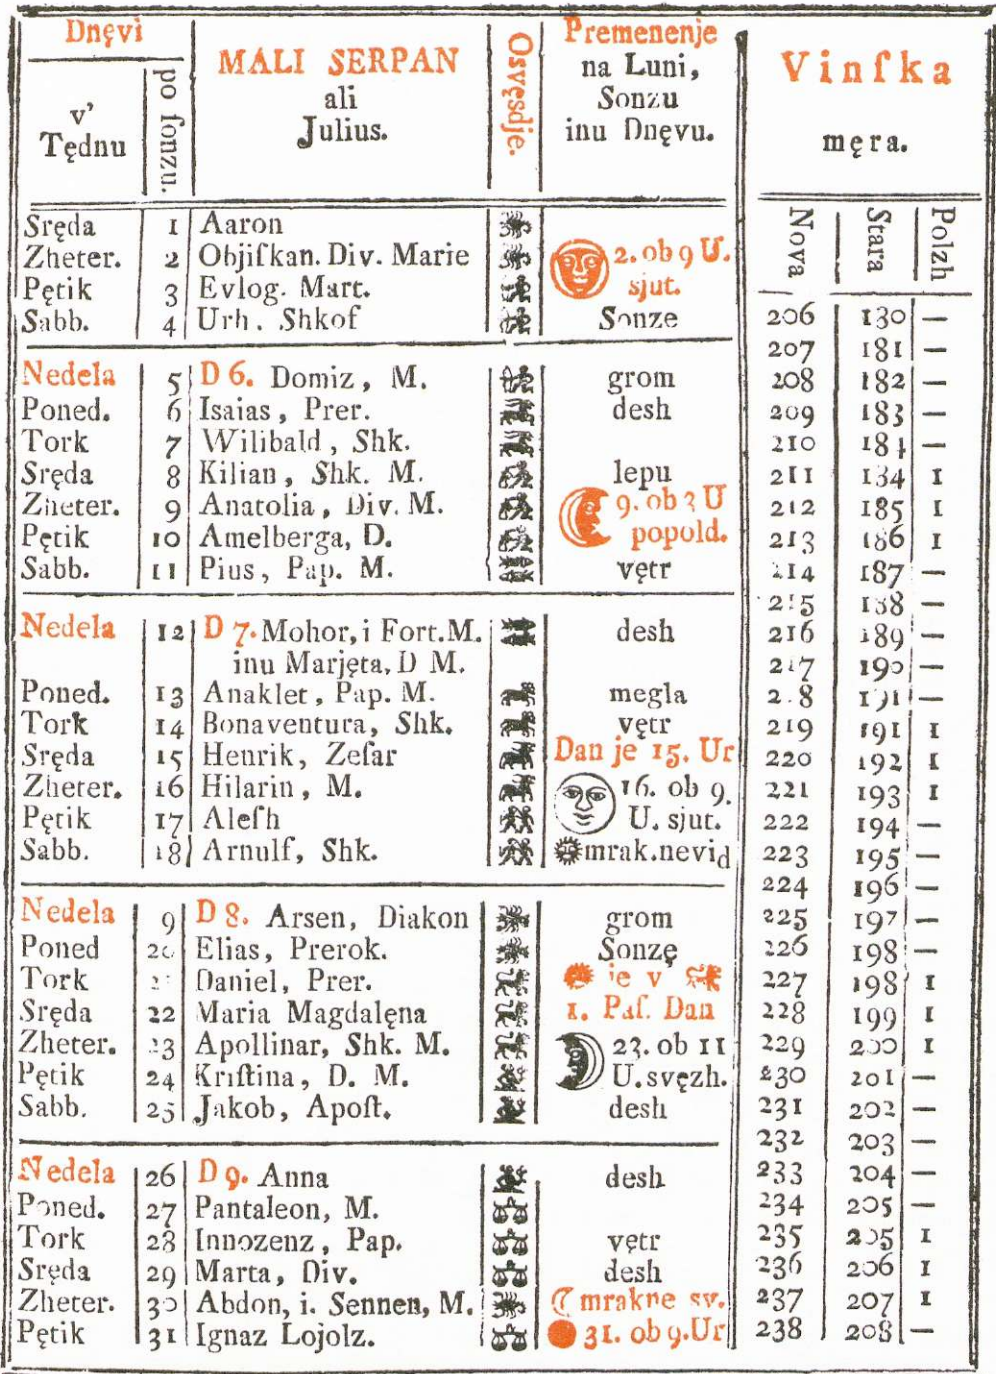 Dnęvi
v' Tędnu
po ſonzu.
MALI SERPAN
ali
Julius.
Osvęsdje.
Premenenje
na Luni,
Sonzu
inu Dnęvu.
Sręda 1 Aaron
Zheter. 2 Objiſkan. Div. Marie 2. ob 9 U.
Pętik 3 Evlog. Mart. sjut.
Sabb. 4 Urh. Shkof Sonze
Nedela 5 D 6. Domiz, M. grom
Poned. 6 Isaias, Prer. desh
Tork 7 Wilibald, Shk.
Sręda 8 Kilian, Shk. M. lepu
Zheter. 9 Anatolia, Div. M. 9. ob 3 U
Pętik 10 Amelberga, D. popold.
Sabb. 11 Pius, Pap. M. vętr
Nedela 12 D 7. Mohor, i Fort. M. desh
inu Marjęta, D M.
Poned. 13 Anaklet, Pap. M. megla
Tork 14 Bonaventura, Shk. vętr
Sręda 15 Henrik, Zeſar Dan je 15. Ur
Zheter. 16 Hilarin, M. 16. ob 9.
Pętik 17 Aleſh U. sjut.
Sabb. 18 Arnulf, Shk. mrak.nevid
Nedela 9 D 8. Arsen, Diakon grom
Poned 20 Elias, Prerok. Sonzę
Tork Daniel, Prer. je v
Sręda 22 Maria Magdalęna 1. Paſ. Dan
Zheter. 23 Apollinar, Shk. M. 23. ob 11
Pętik 24 Kriſtina, D. M. U. svęzh.
Sabb. 25 Jakob, Apoſt. desh
Nedela 26 D 9. Anna desh
Poned. 27 Pantaleon, M.
Tork 28 Innozenz, Pap. vętr
Sręda 29 Marta, Div. desh
Zheter. 30 Abdon, i. Sennen, M. mrakne sv.
Pętik 31 Ignaz Lojolz. 31. ob 9. Ur
Vinſka
męra.
Nova Stara Polzh
206 130 —
207 181 —
208 182 —
209 183 —
210 184 —
211 184 1
212 185 1
213 186 1
214 187 —
215 188 —
216 189 —
217 190 —
2.8 191 —
219 191 1
220 192 1
221 193 1
222 194 —
223 195 —
224 196 —
225 197 —
226 198 —
227 198 1
228 199 1
229 200 1
230 201 —
231 202 —
232 203 —
233 204 —
234 205 —
235 205 1
236 206 1
237 207 1
238 208 —